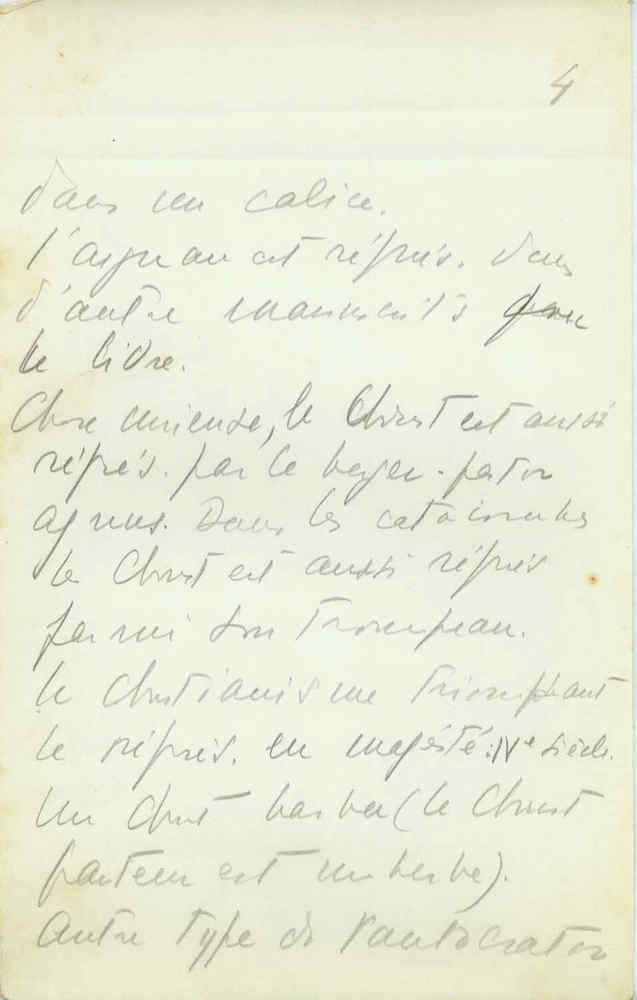 4
dans un calice.
l'agneau est réprés. dans
d'autre manuscrits
le livre.
Chose curieuse, le Christ est aussi
réprés. par le berger - pastor
agnus. Dans les catacombes
le Christ est aussi réprés
parmi son troupeau.
le Christianisme triomphant
le réprés. en majésté. IVe siècle.
Un Christ barbu (le Christ
pasteur est imberbe).
Autre type de Pantocrator